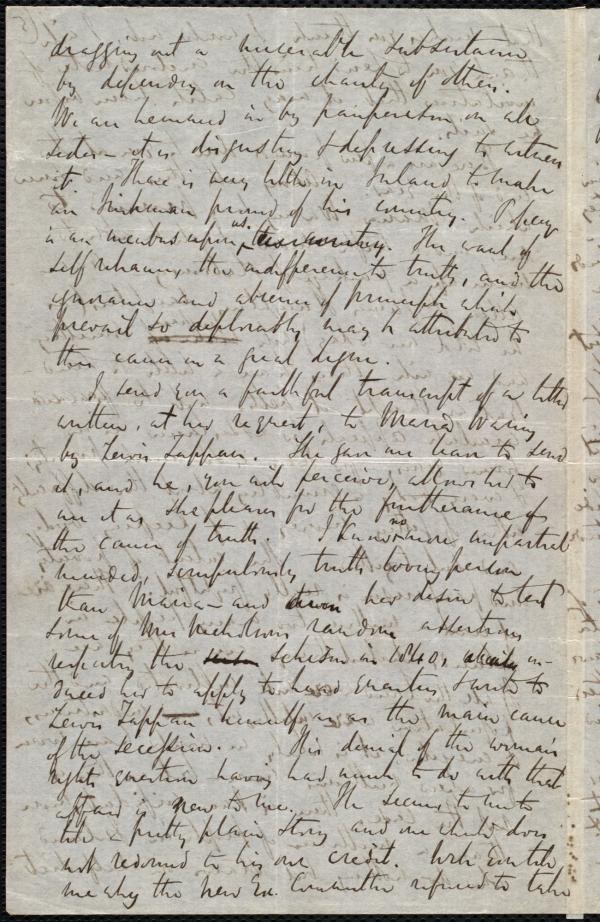 dragging out a miserable subsistence
by depending on the charity of others.
We are hemmed in by pauperism on all
sides - it is disgusting & depressing to witness
it. There is very little in Ireland to make
an Irishman proud of his country. Popery
is an incubus upon us. The want of
self reliance, the indifference to truth, and the
ignorance and absence of principle which
prevail so deplorably may be attributed to
this cause in a great degree.
I send you a faithful transcript of a letter
written, at her request, to Maria Waring
by Lewis Tappan. She gave me leave to send
it, and he, you will perceive, allows her to
use it as she pleases for the furtherance of
the cause of truth. I know no more impartial
minded, scrupulously truth loving person
than Maria - and her desire to test
some of Mrs Nicholson's random assertions
respecting the schism in 1840, in-
duced her to apply to head quarters & write to
Lewis Tappan, himself as the main cause
of the secession. His denial of the woman's
rights question having had much to do with that
affair is new to me. He seems to me to
tell a pretty plain story and one which does
not redound to his own credit. Will you tell
me why the new Ex. Committee refused to take